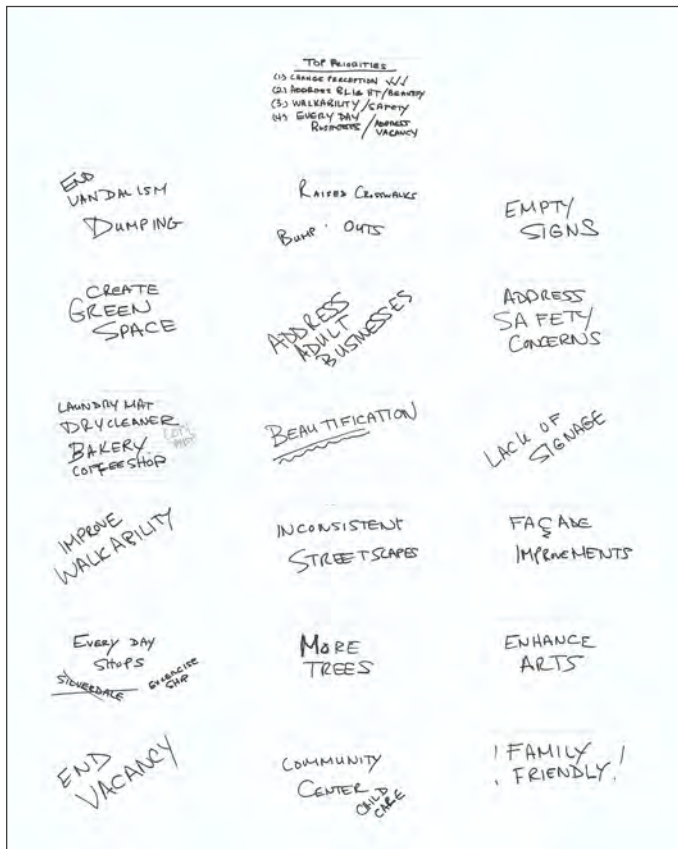 TOP PRIORITIES
(1) CHANGE PERCEPTION ✓✓✓
(2) ADDRESS BLIGHT/BEAUTIFY
(3) WALKABILITY/SAFETY
(4) EVERY DAY BUSINESSES / ADDRESS VACANCY
END
VANDALISM
DUMPING
RAISED CROSSWALKS
BUMP · OUTS
EMPTY
SIGNS
CREATE
GREEN
SPACE
ADDRESS
ADULT
BUSINESSES
ADDRESS
SAFETY
CONCERNS
LAUNDRY MAT
DRYCLEANER
BAKERY
COFFEESHOP
BEAUTIFICATION
LACK OF
SIGNAGE
IMPROVE
WALKABILITY
INCONSISTENT
STREETSCAPES
FAÇADE
IMPROVEMENTS
EVERY DAY
SHOPS
EXCERCISE
SHOP
MORE
TREES
ENHANCE
ARTS
END
VACANCY
COMMUNITY
CENTER
CHILD
CARE
! FAMILY !
! FRIENDLY !